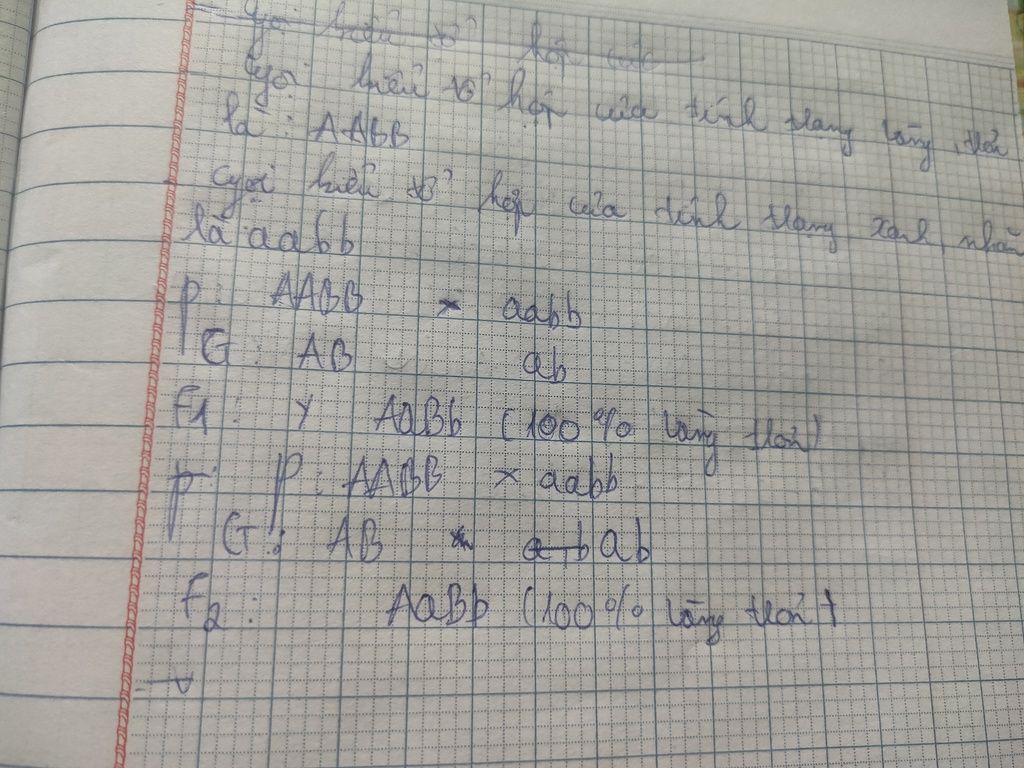 Gọi kiểu tổ hợp của
Gọi kiểu tổ hợp của tính trạng vàng, trơn
là : AABB
Gọi kiểu tổ hợp của tính trạng xanh, nhăn
là aabb
P : AABB × aabb
G : AB ab
F1 : AaBb (100% vàng trơn)
P : AABB × aabb
G : AB ab
F2 : AaBb (100% vàng trơn)